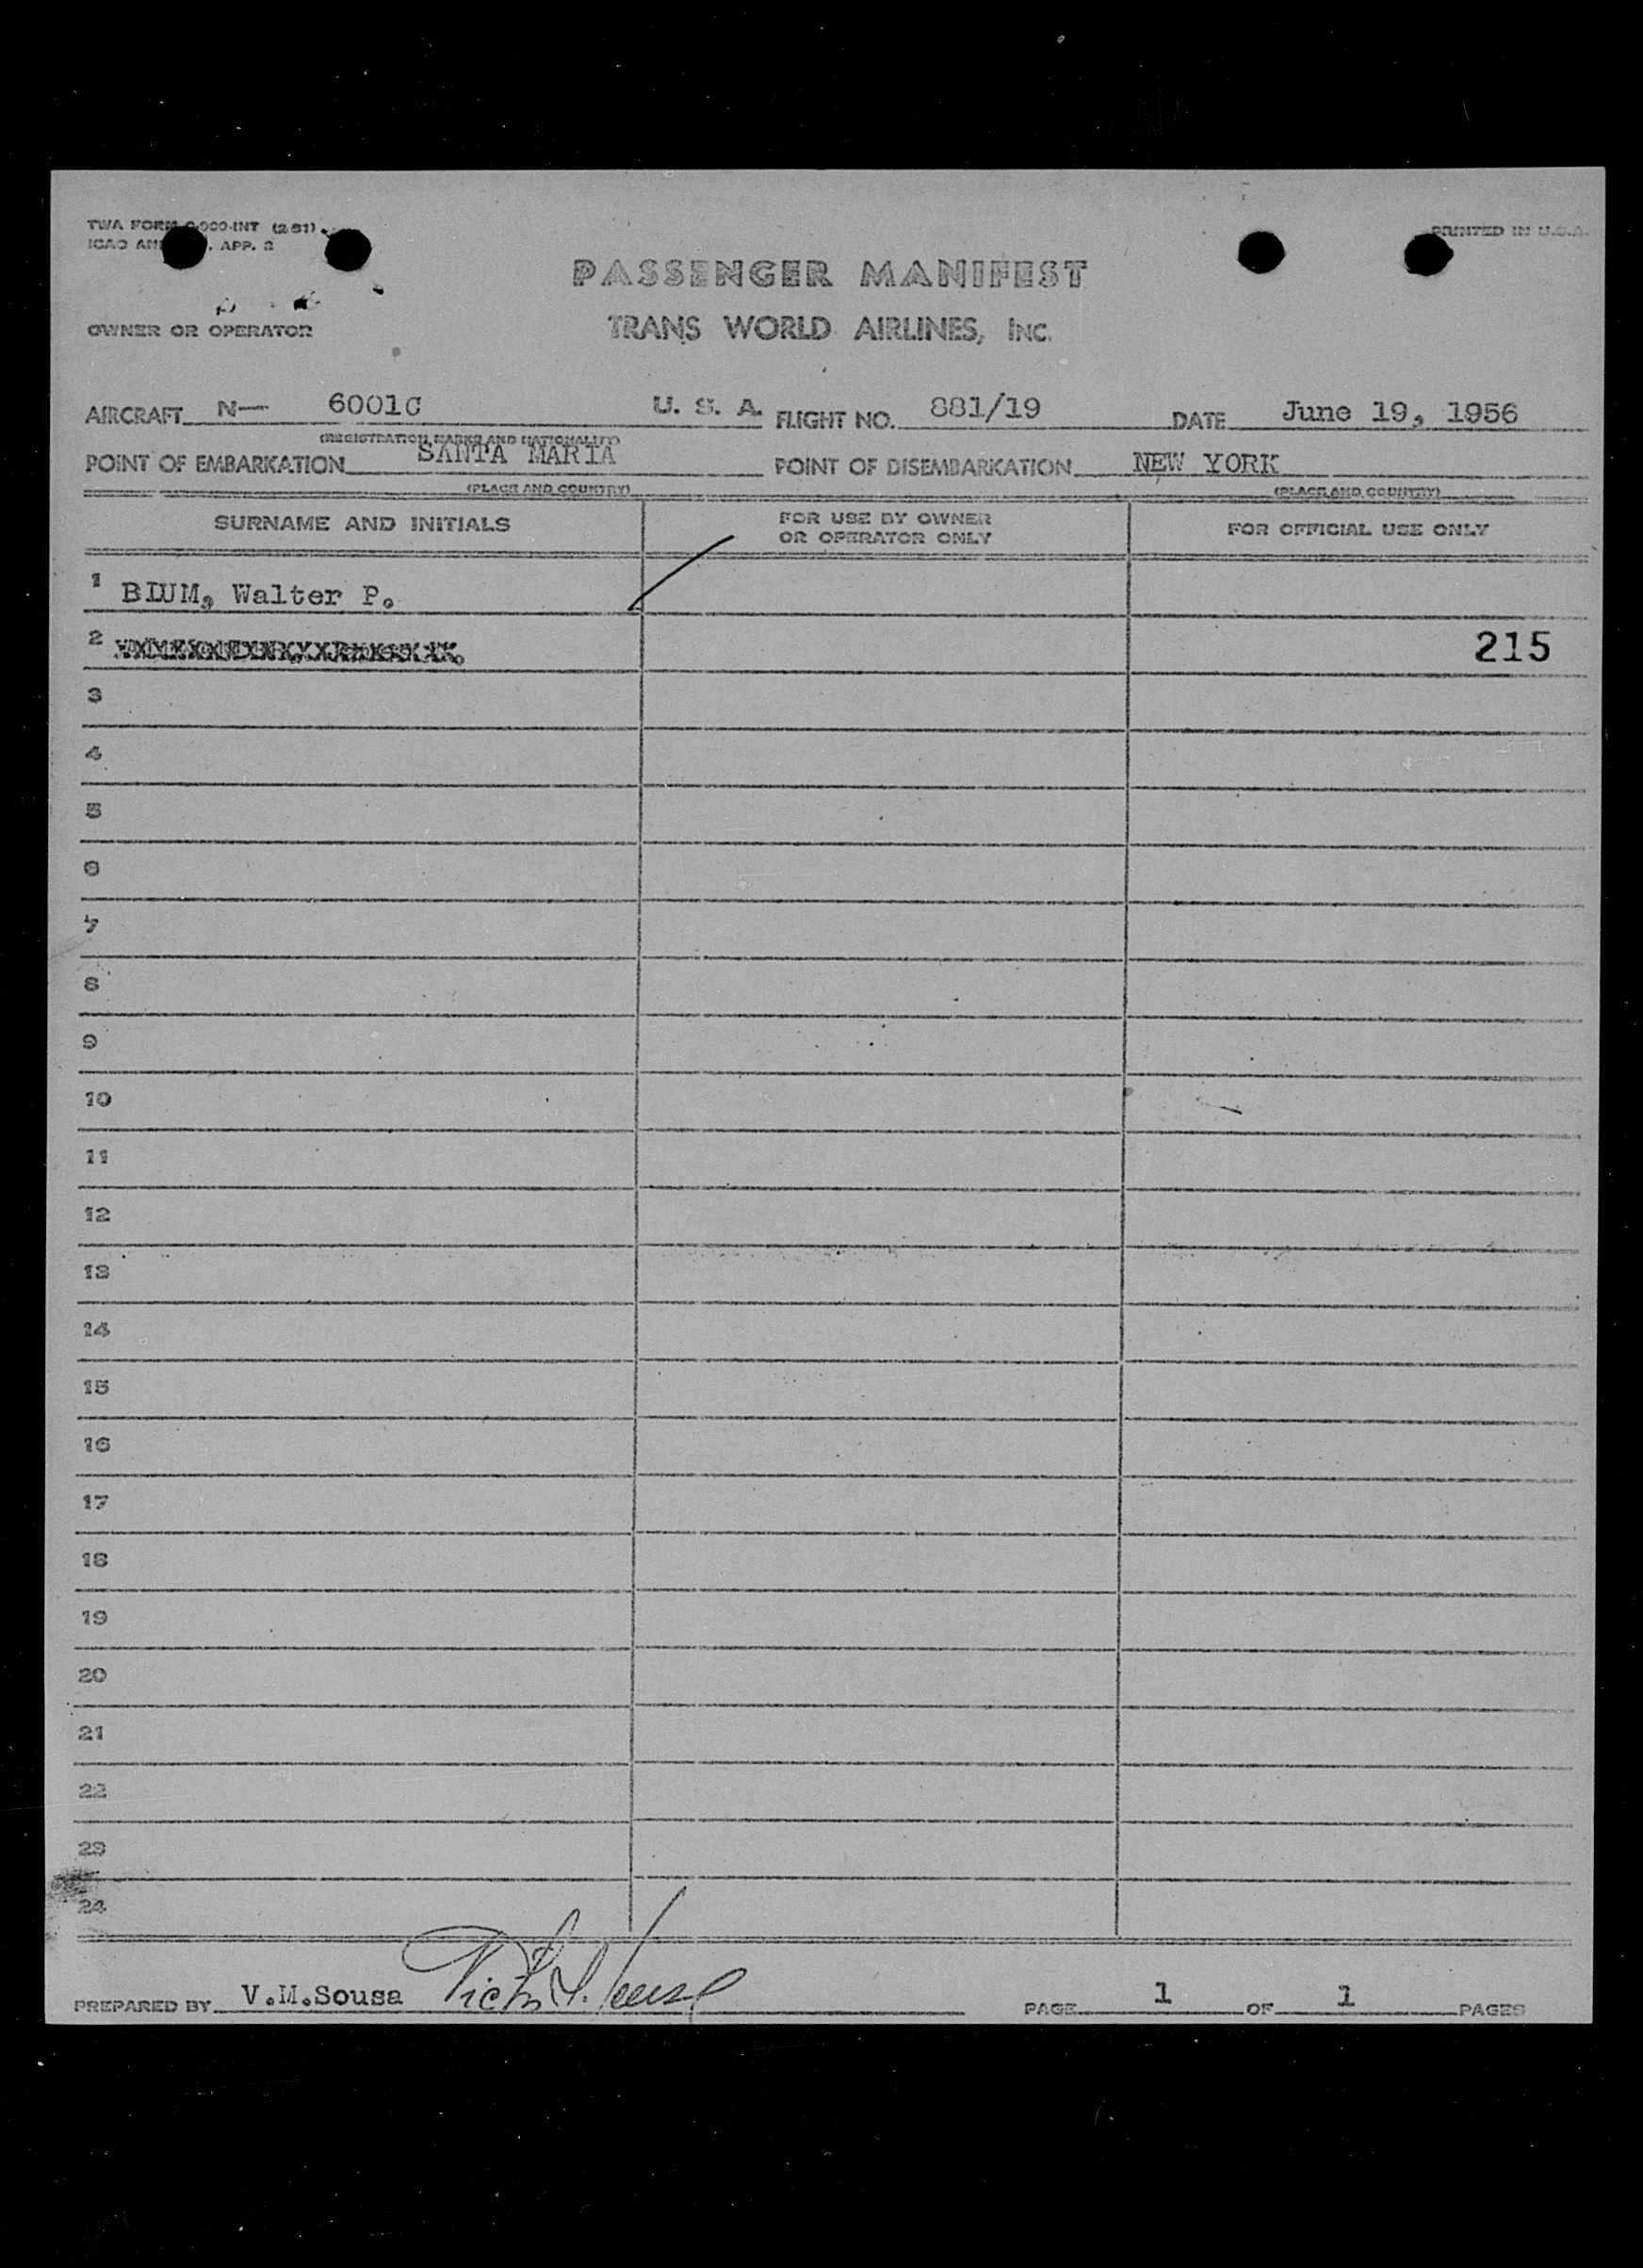 TWA FORM 0-000-INT (2-51)
ICAO AN , APP. 2
PRINTED IN U.S.A.
PASSENGER MANIFEST
OWNER OR OPERATOR
TRANS WORLD AIRLINES, INC.
AIRCRAFT N— 6001C U. S. A. FLIGHT NO. 881/19 DATE June 19, 1956
(REGISTRATION MARKS AND NATIONALITY)
POINT OF EMBARKATION SANTA MARIA POINT OF DISEMBARKATION NEW YORK
(PLACE AND COUNTRY) (PLACE AND COUNTRY)
SURNAME AND INITIALS FOR USE BY OWNER OR OPERATOR ONLY FOR OFFICIAL USE ONLY
1 BLUM, Walter P.
2 215
3
4
5
6
7
8
9
10
11
12
13
14
15
16
17
18
19
20
21
22
23
24
PREPARED BY V.M.Sousa PAGE 1 OF 1 PAGES